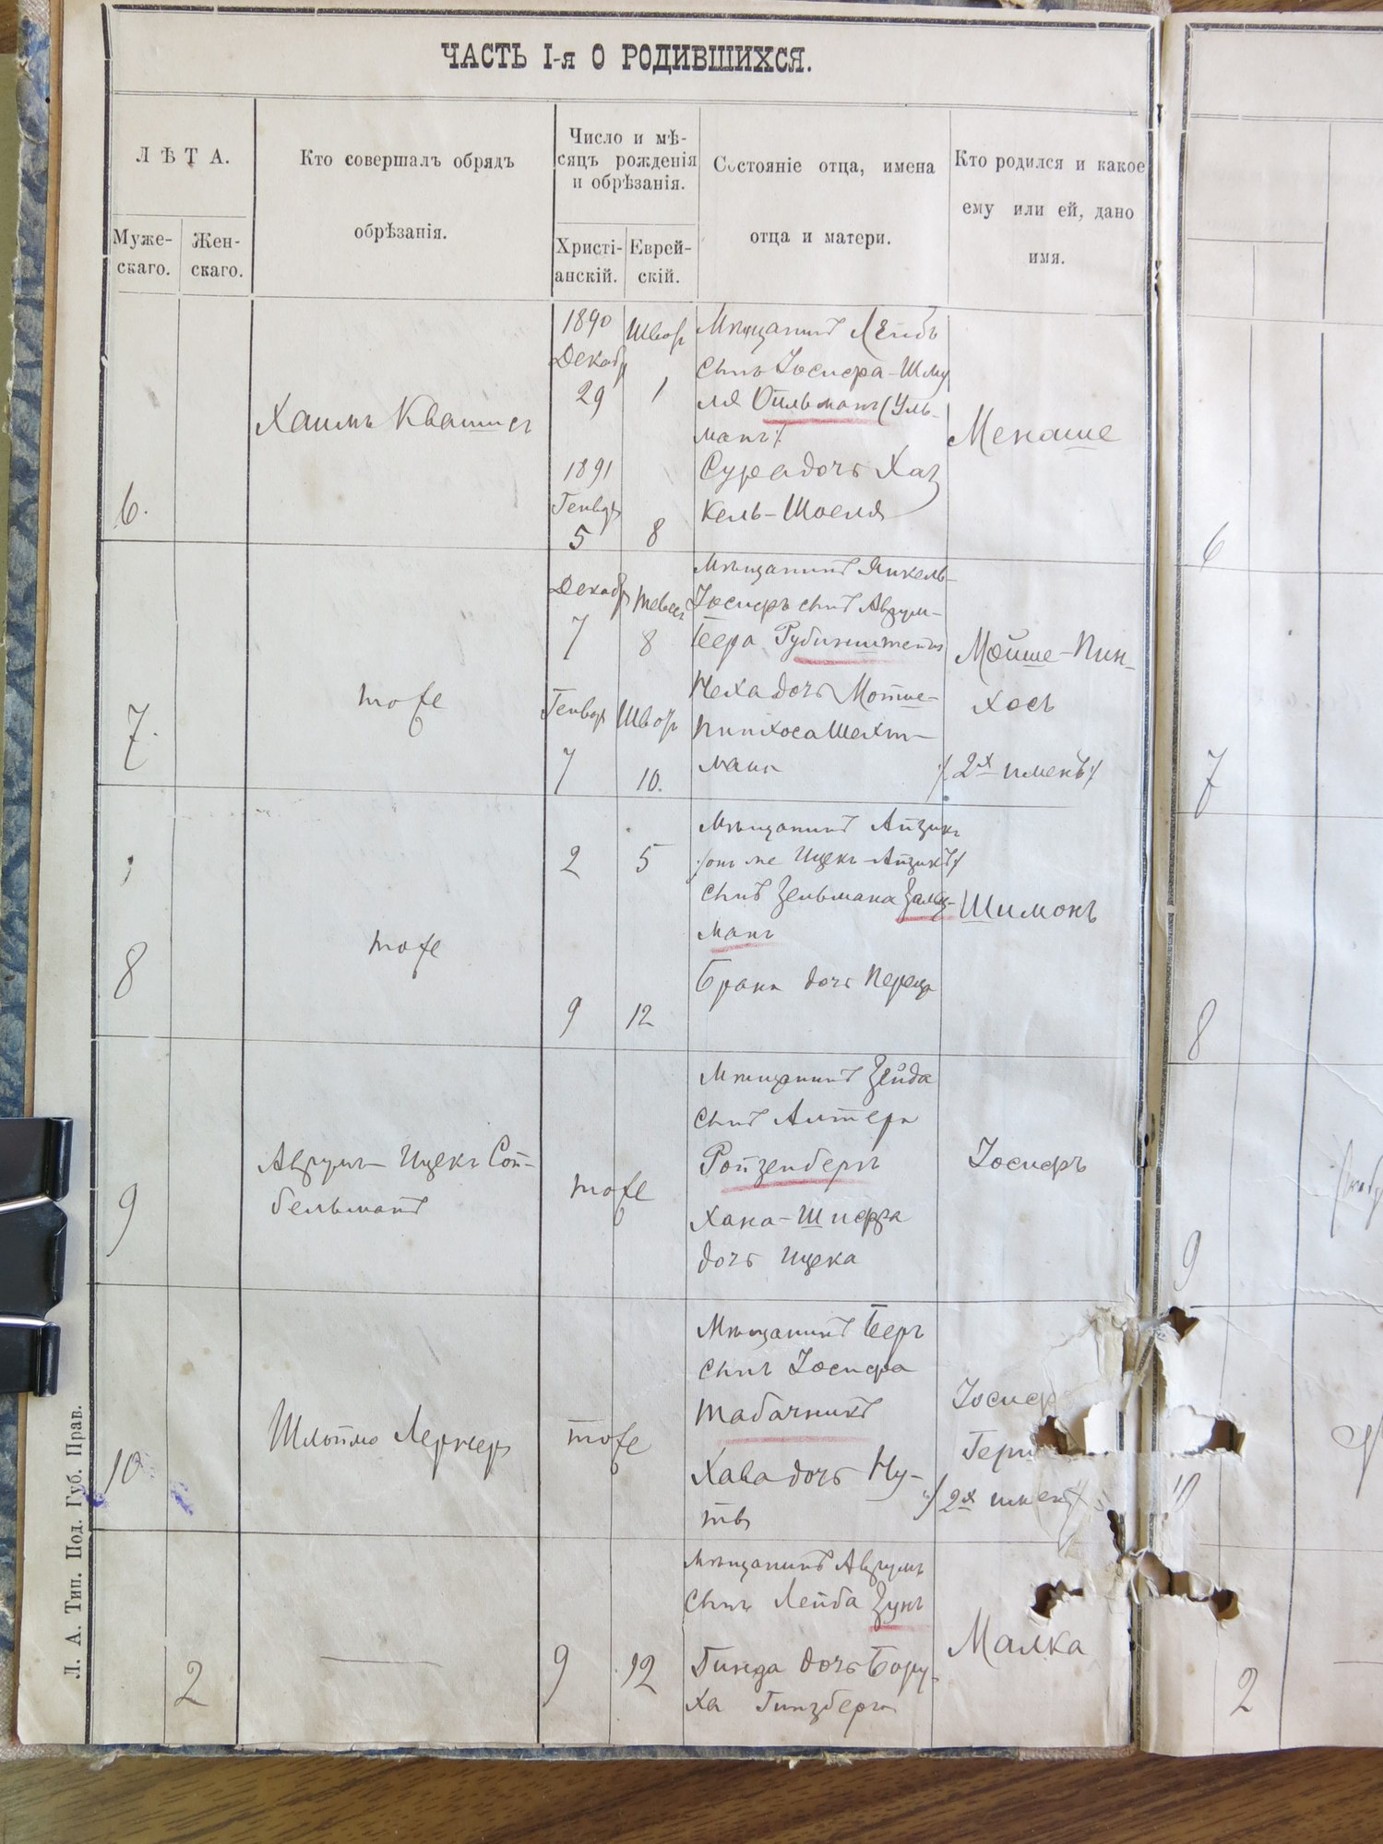 ЧАСТЬ I-я О РОДИВШИХСЯ.
ЛѢТА.
Муже-
скаго.
Жен-
скаго.
Кто совершалъ обрядъ
обрѣзанія.
Число и мѣ-
сяцъ рожденія
и обрѣзанія.
Христі-
анскій.
Еврей-
скій.
Состояніе отца, имена
отца и матери.
Кто родился и какое
ему или ей, дано
имя.
6.
Хаимъ
1890
Декабр
29
1891
Генвр
5
Швот
1
8
Мѣщанинъ Лейбъ
сынъ Іосифа-Шму
ля Ойльманъ (Уль-
манъ)
Сура дочь Хаз
кель-Шоеля
Менаше
6
7.
тоже
Декабр
7
Генвр
7
Тевес
8
Швот
10.
Мѣщанинъ Янкель-
Іосифъ сынъ Аврум-
Бера Рубинштейнъ
Неха дочь Мотте-
Пинхоса Шехт-
мана
Мойше-Пин-
хосъ
/2х именъ/
7
8
тоже
2
9
5
12
Мѣщанинъ Айзикъ
/онъ же Ицекъ-Айзикъ/
сынъ Зельмана Залц-
манъ
Брана дочь Переца
Шимонъ
8
9
Аврумъ-Ицекъ Сой-
бельманъ
тоже
Мѣщанинъ Зейда
сынъ Алтера
Ройзенбергъ
Хана-Шифра
дочь Ицека
Іосифъ
9
10
Шлойма Лернеръ
тоже
Мѣщанинъ Беръ
сынъ Іосифа
Табачникъ
Хава дочь Ну-
та
Іосиф
Герш
/2х именъ/
10
2
9
12
Мѣщанинъ Аврумъ
сынъ Лейба Зунъ
Гинда дочь Бору-
ха Гинзберга
Малка
2
Л. А. Тип. Под. Губ. Прав.